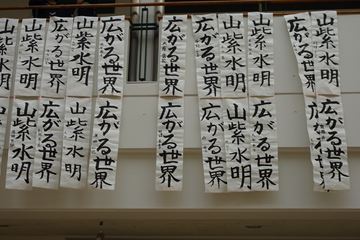 山紫水明
広がる世界
山紫水明
山紫水明
広がる世界
広がる世界
広がる世界
山紫水明
山紫水明
山紫水明
広がる世界
広がる世界
山紫水明
広がる世界
広がる世界
広がる世界
山紫水明
広がる世界
山紫水明